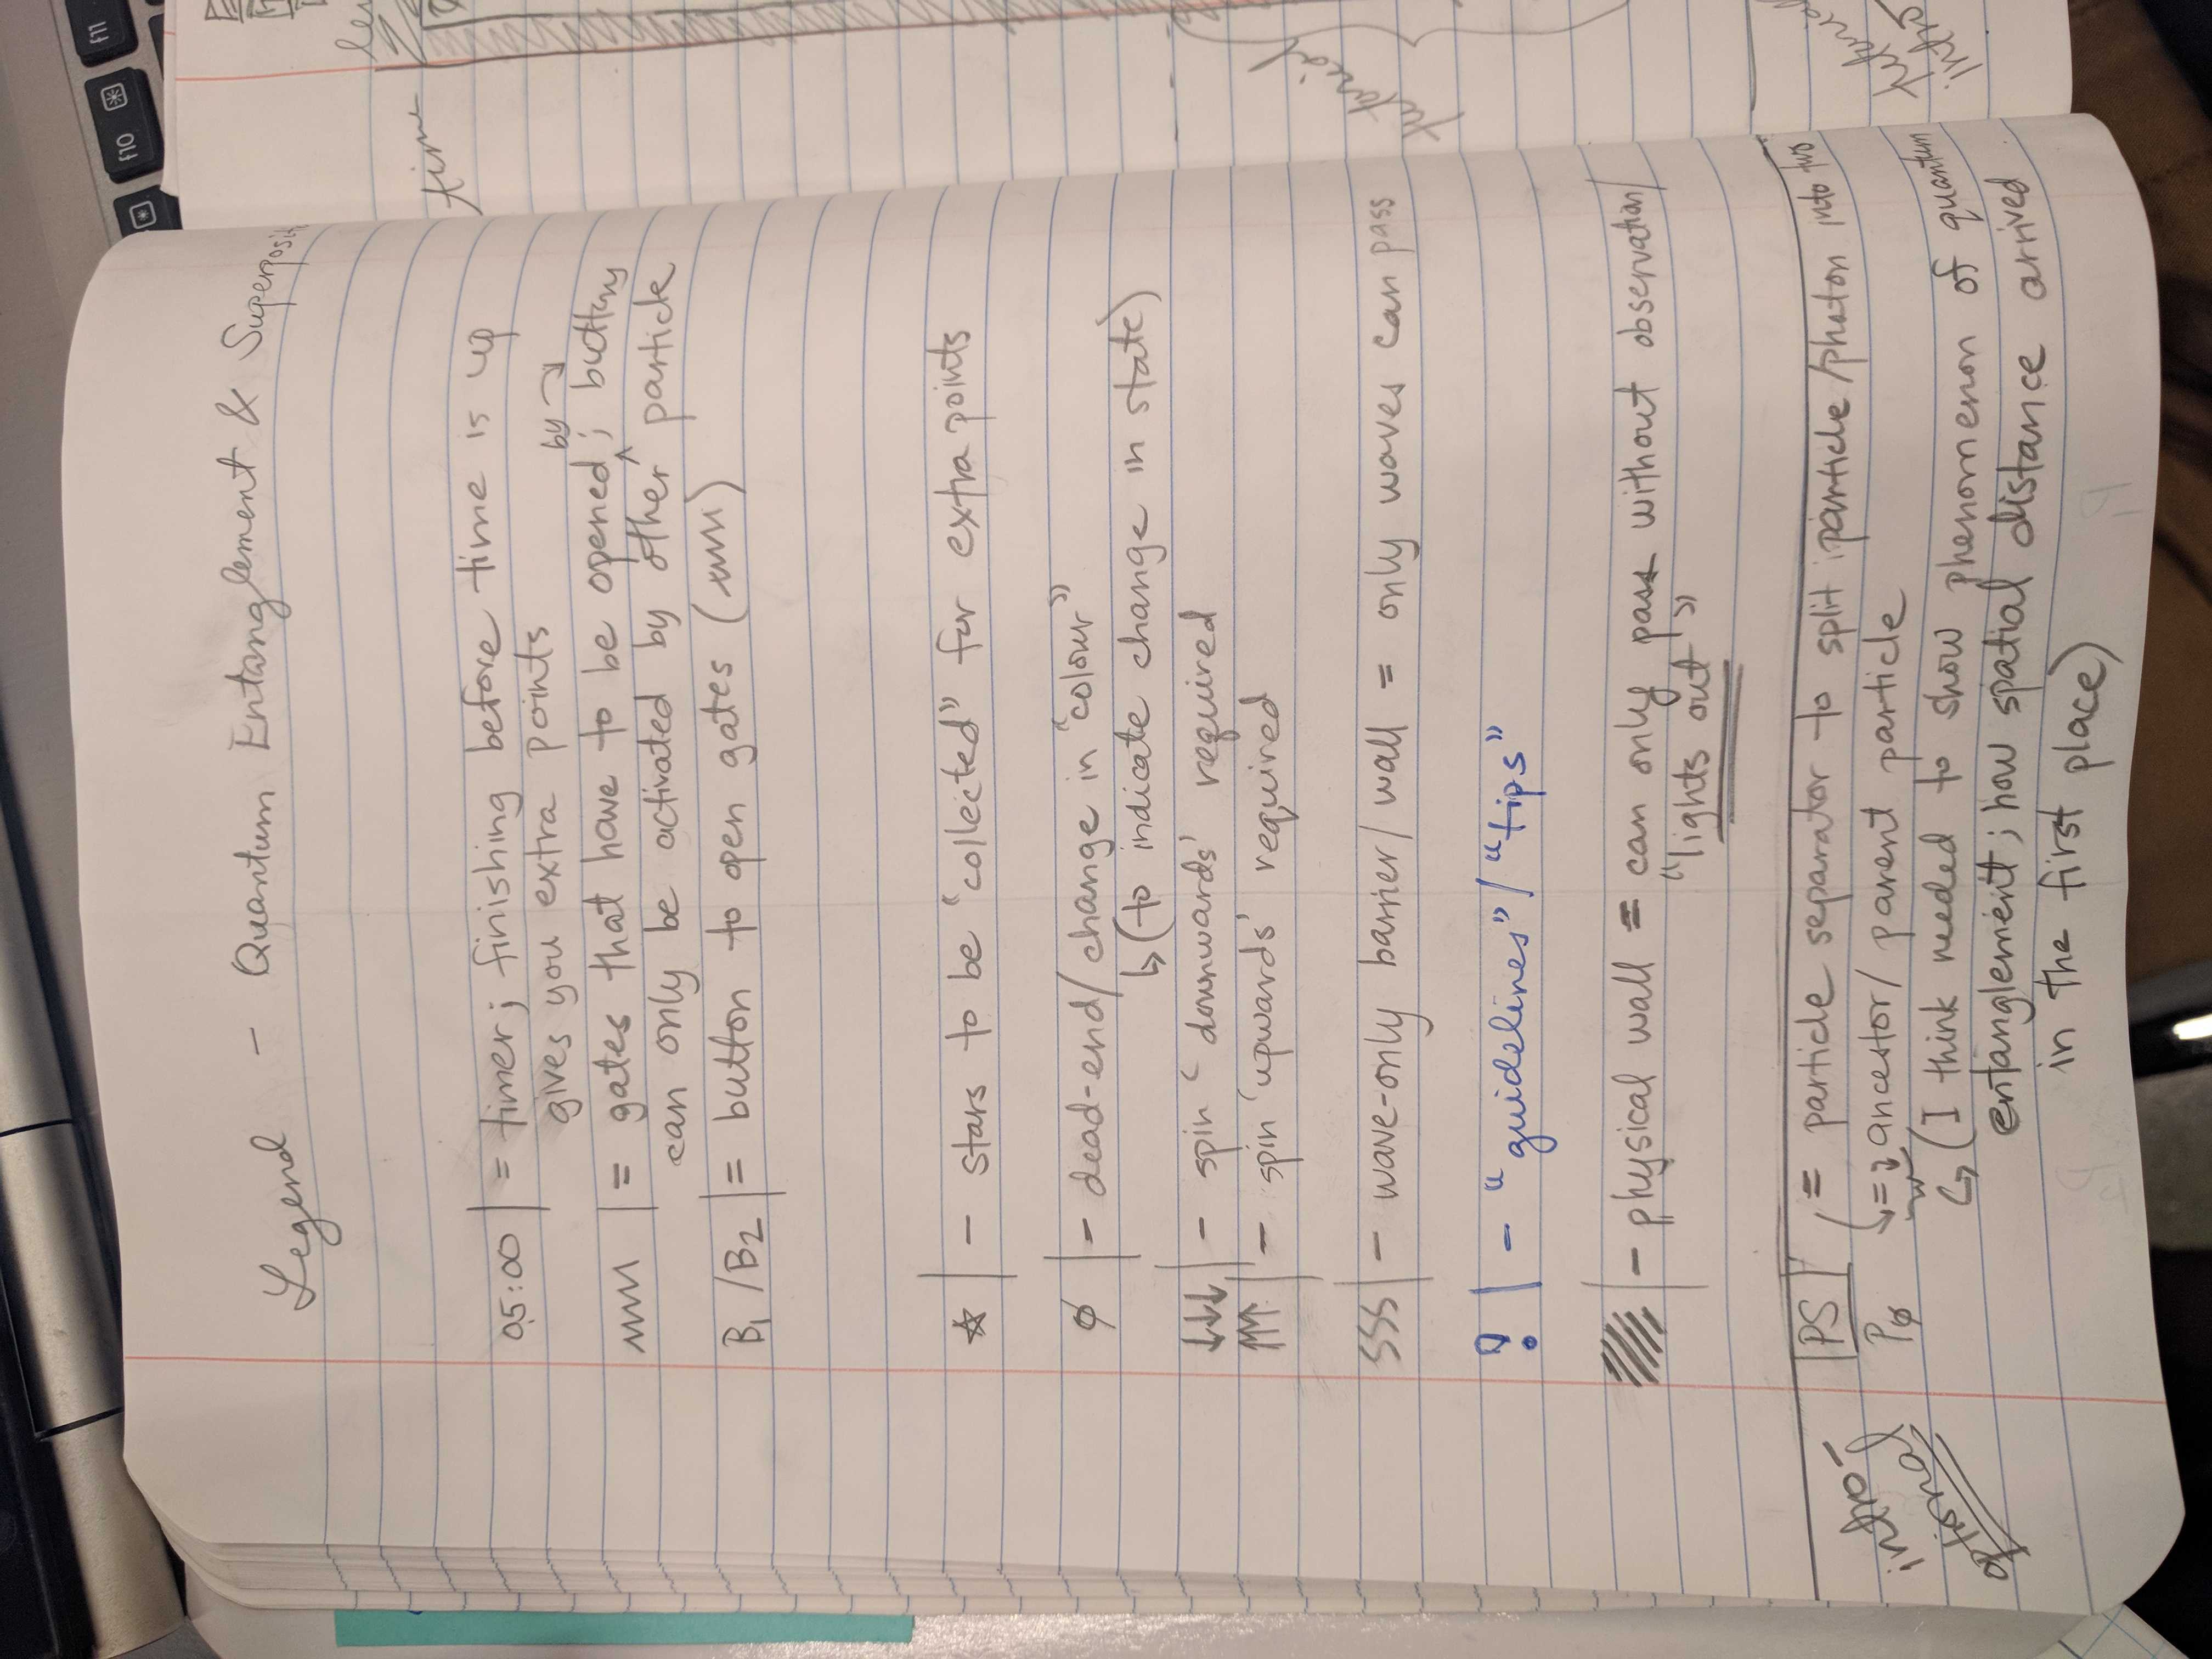 Legend - Quantum Entanglement & Superposit
05:00 | = timer; finishing before time is up
gives you extra points
by
| = gates that have to be opened; buttons
can only be activated by other particle
B1 / B2 | = button to open gates ( )
☆ | - stars to be "collected" for extra points
φ | - dead-end / change in "colour"
↳ (to indicate change in state)
↓↓↓ | - spin 'downwards' required
↑↑↑ | - spin 'upwards' required
SSS | - wave-only barrier / wall = only waves can pass
? | - "guidelines" / "tips"
| - physical wall = can only pass without observation /
"lights out"
intro-
optional
PS | = particle separator to split particle/photon into two
Pφ ↳ = ancestor / parent particle
↳ (I think needed to show phenomenon of quantum
entanglement; how spatial distance arrived
in the first place)
time
tutorial
intro
f10
f11